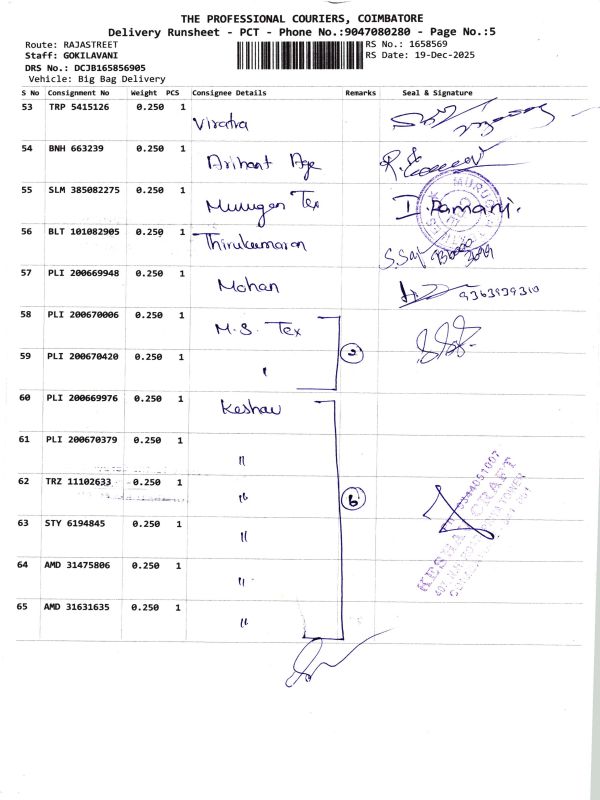 THE PROFESSIONAL COURIERS, COIMBATORE
Delivery Runsheet - PCT - Phone No.:9047080280 - Page No.:5
Route: RAJASTREET RS No.: 1658569
Staff: GOKILAVANI RS Date: 19-Dec-2025
DRS No.: DCJB165856905
Vehicle: Big Bag Delivery
S No Consignment No Weight PCS Consignee Details Remarks Seal & Signature
53 TRP 5415126 0.250 1
54 BNH 663239 0.250 1 Arihant Age
55 SLM 385082275 0.250 1 Murugan Tex
56 BLT 101082905 0.250 1 Thirukumaran
57 PLI 200669948 0.250 1 Mohan 9363939310
58 PLI 200670006 0.250 1 M.S. Tex
59 PLI 200670420 0.250 1 " 2
60 PLI 200669976 0.250 1 Keshav
61 PLI 200670379 0.250 1 "
62 TRZ 11102633 0.250 1 " 6
63 STY 6194845 0.250 1 "
64 AMD 31475806 0.250 1 "
65 AMD 31631635 0.250 1 "